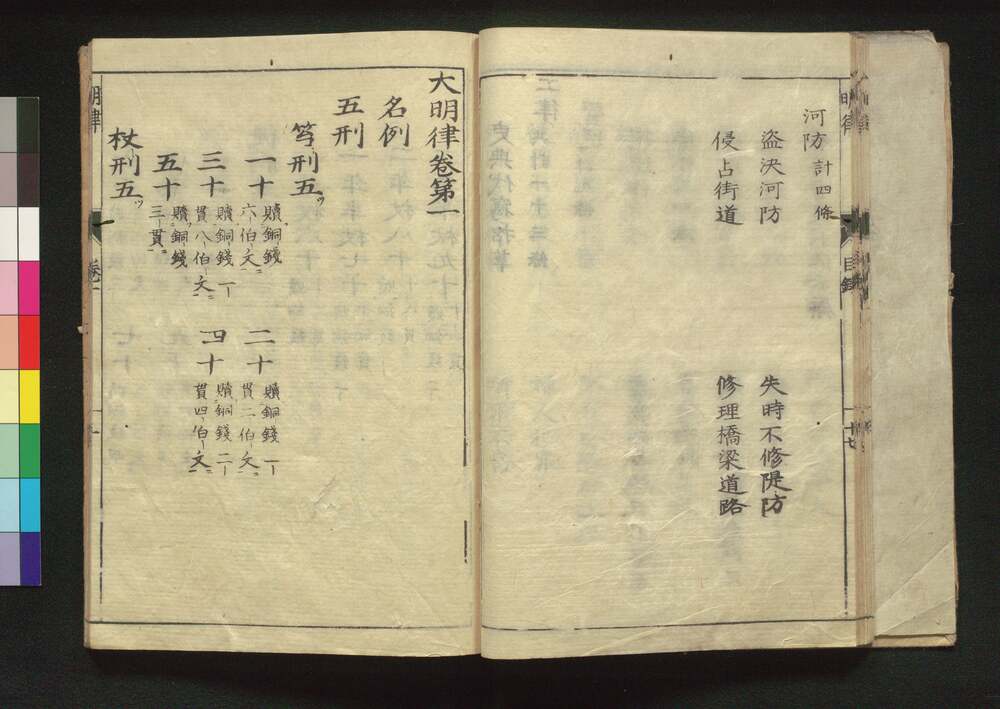 河防計四條
盜决河防
失時不修隄防
侵占街道
修理橋梁道路
目錄
十七
大明律卷第一
名例
五刑
笞刑五
一十 贖銅錢六伯文
二十 贖銅錢一貫二伯文
三十 贖銅錢一貫八伯文
四十 贖銅錢二貫四伯文
五十 贖銅錢三貫
杖刑五
明律
卷一